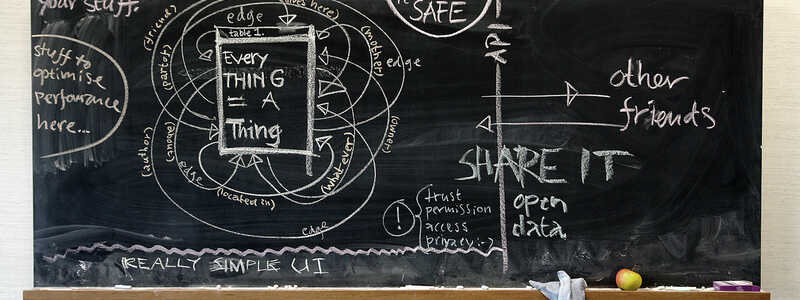 your stuff.
SAFE
edge
table 1.
(friend)
(mother)
edge
(part of)
Every
THING
= A
Thing
stuff to
optimise
performance
here...
API
other
friends
(owner)
(author)
(anove)
edge
(located in)
(whatever)
edge
SHARE IT
open
data
!
trust
permission
access
privacy :-)
REALLY SIMPLE UI